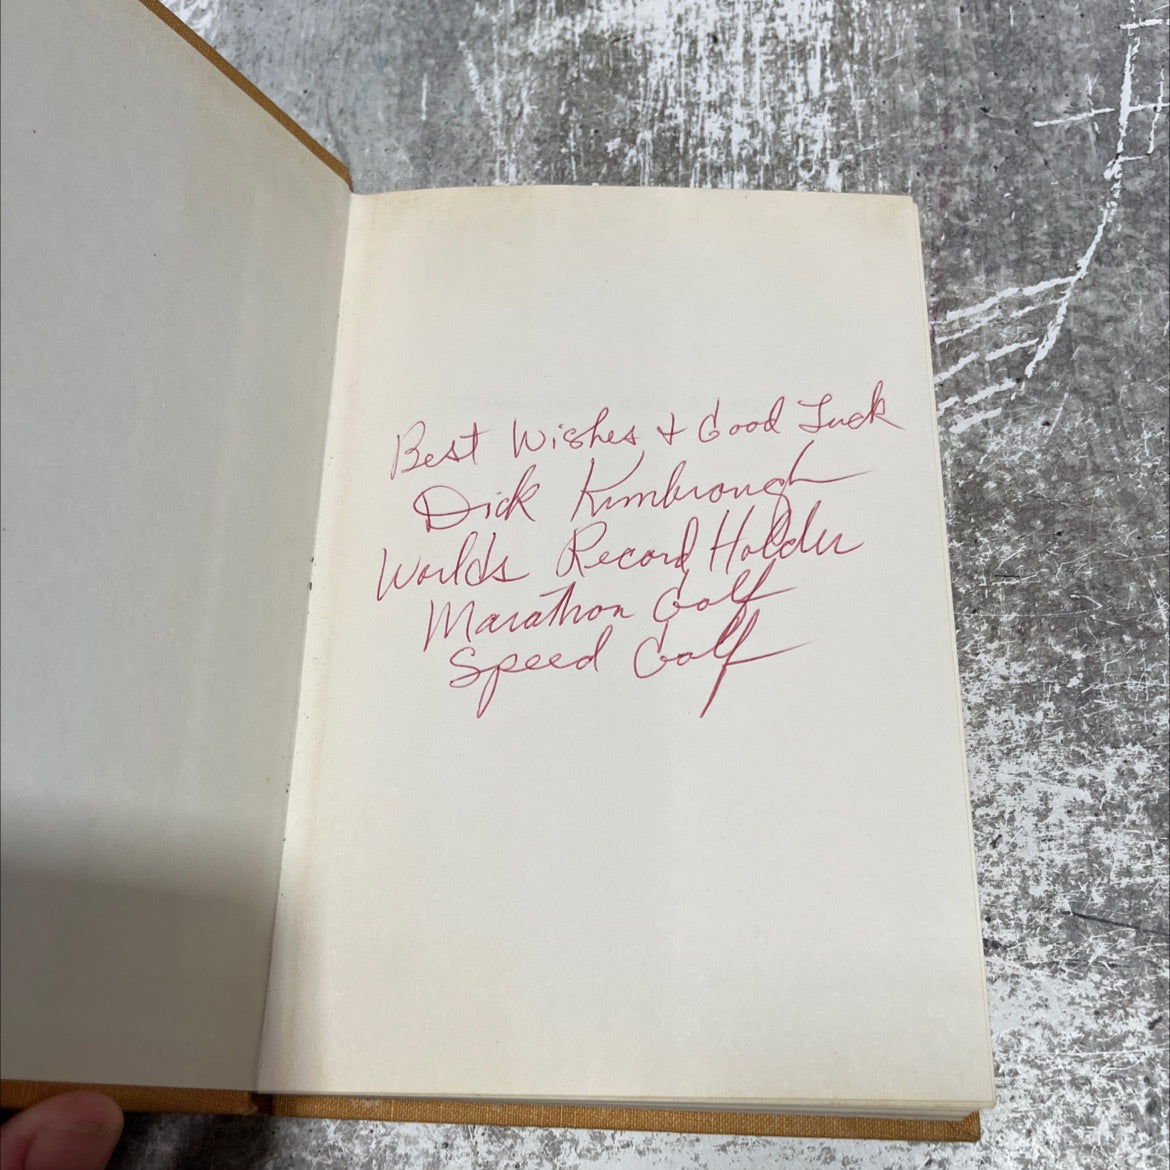 Best Wishes + Good Luck
Dick Kimbrough
Worlds Record Holder
Marathon Golf
Speed Golf